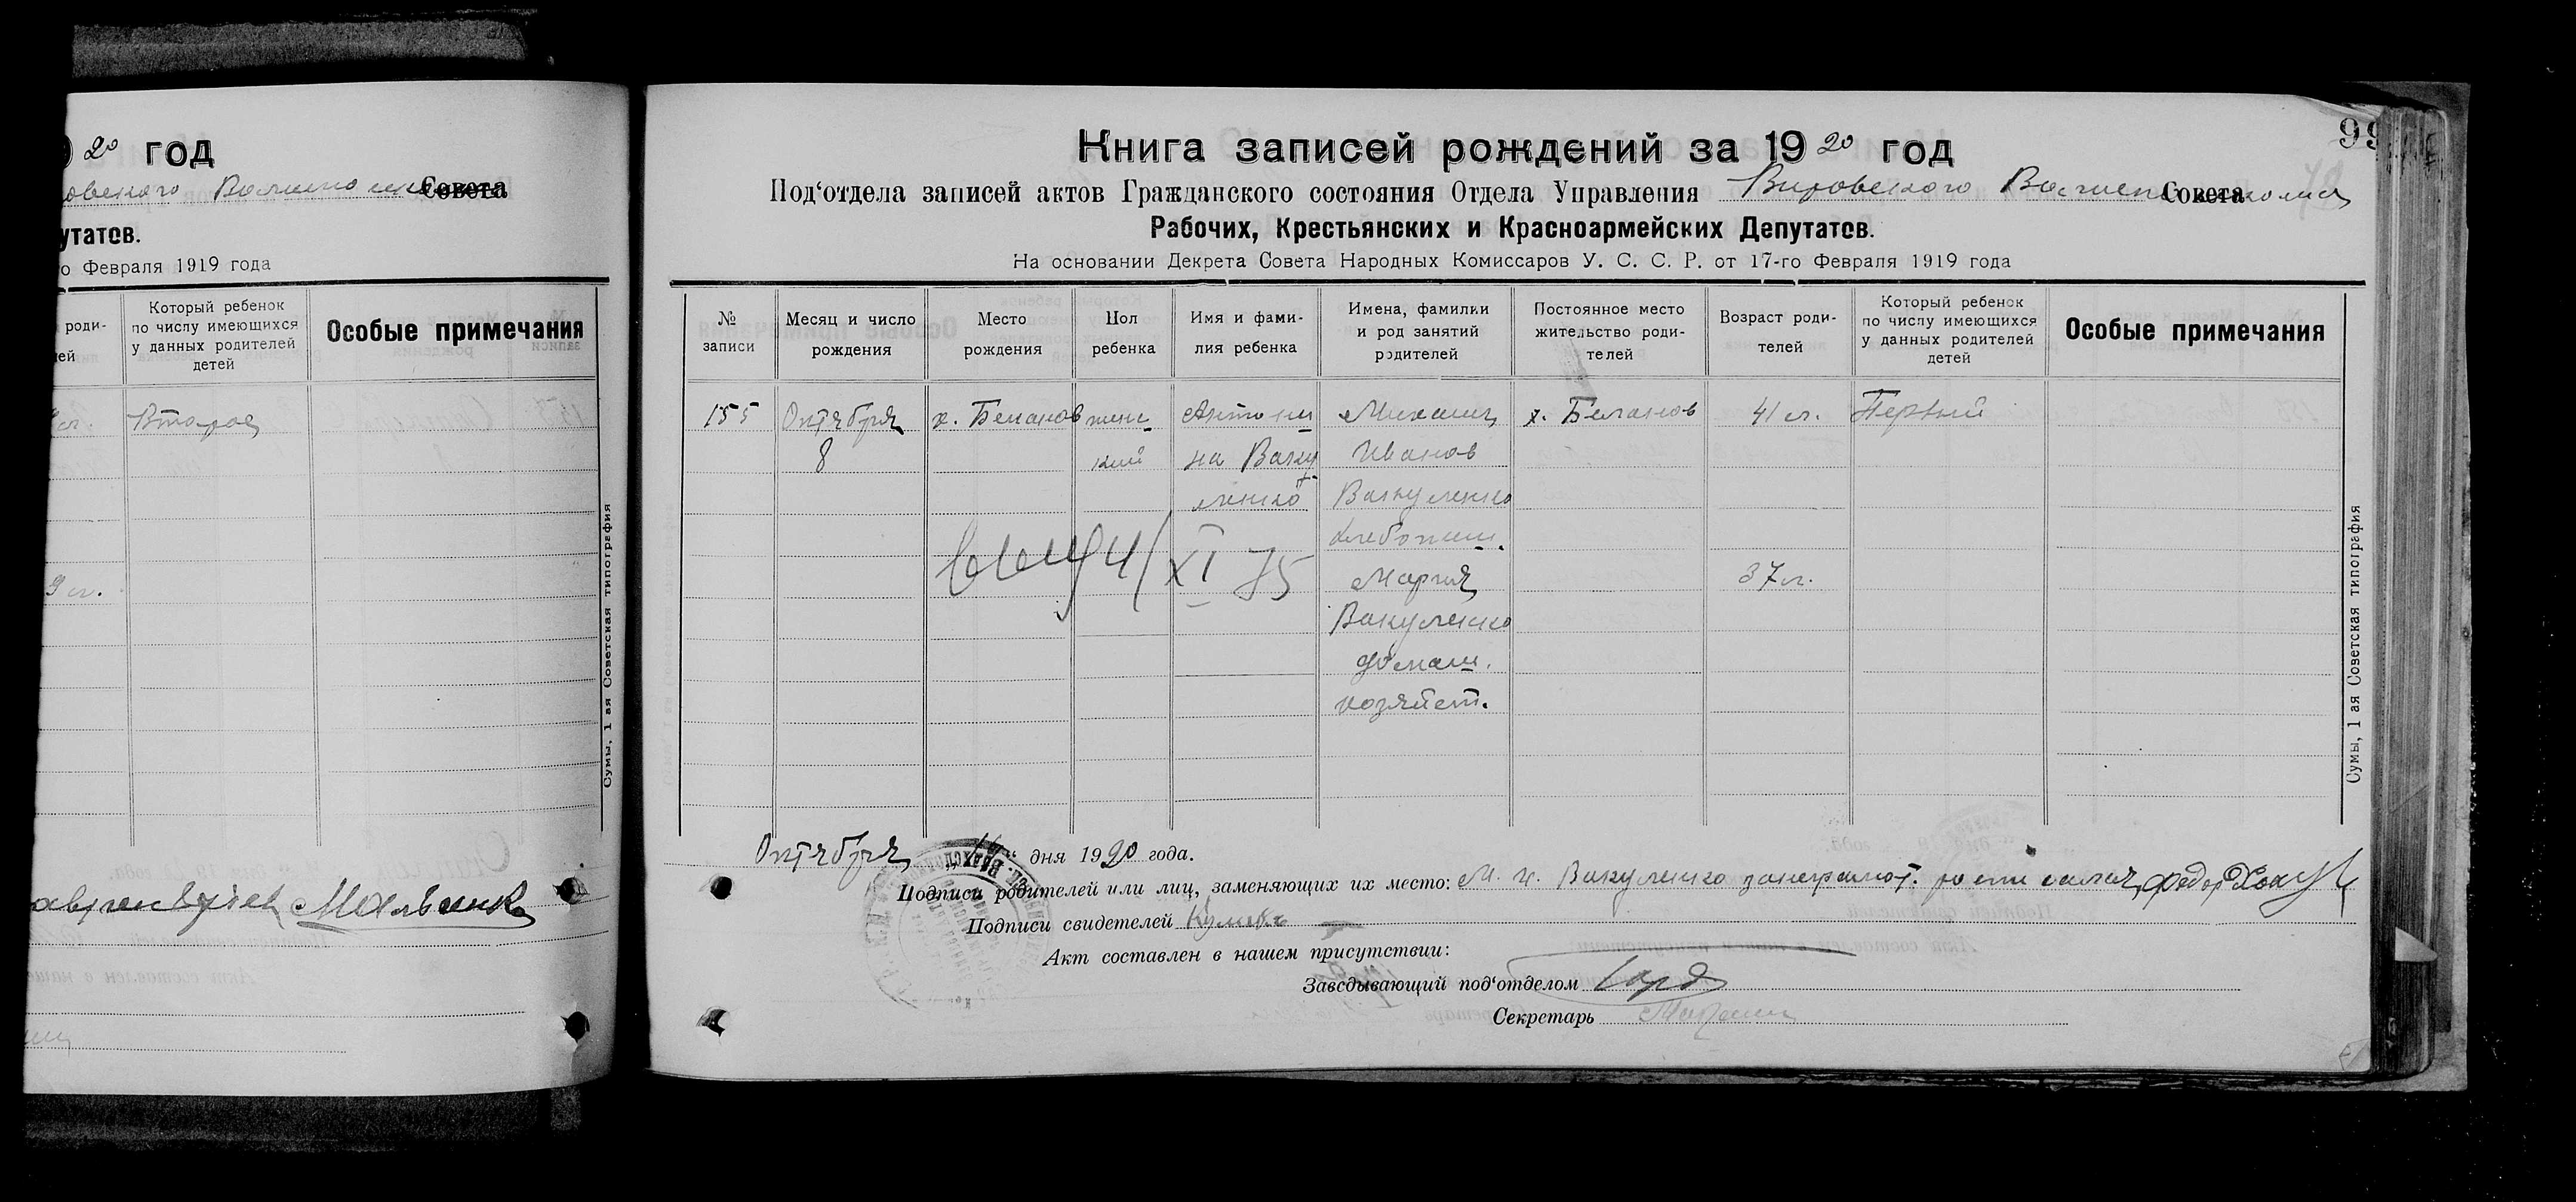 20 год
Совета
утатов.
го Февраля 1919 года
роди-
Который ребенок
по числу имеющихся
у данных родителей
детей
Особые примечания
Второй
9 л.
Сумы, 1 ая Советская типография
99
Книга записей рождений за 1920 год
Под‘отдела записей актов Гражданского состояния Отдела Управления Вировского Совета
Рабочих, Крестьянских и Красноармейских Депутатов.
На основании Декрета Совета Народных Комиссаров У. С. С. Р. от 17-го Февраля 1919 года
№
записи
Месяц и число
рождения
Место
рождения
Пол
ребенка
Имя и фами-
лия ребенка
Имена, фамилии
и род занятий
родителей
Постоянное место
жительство роди-
телей
Возраст роди-
телей
Который ребенок
по числу имеющихся
у данных родителей
детей
Особые примечания
155 Октября х. Беланов жен Антони Михаил х. Беланов 41 л. Первый
8 кий на Ваку Иванов
ленко Вакуленко
хлебопаш.
XI 75 Мария 37 л.
Вакуленко
домаш.
хозяйст.
Сумы, 1 ая Советская типография
Октября дня 1920 года.
Подписи родителей или лиц, заменяющих их место: М. И. Вакуленко Федор
Подписи свидетелей
Акт составлен в нашем присутствии:
Заведывающий под‘отделом
Секретарь